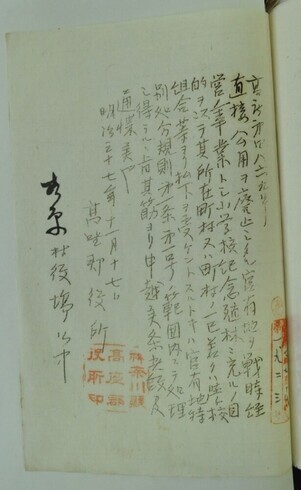 高衣第八六九号
直接公用ヲ廃止シタル官有地ヲ戦時経
営事業トシ小学校記念植林ニ充ルノ目
的ヲ以テ其所在町村又ハ町村ノ一区若クハ学校
組合等ヨリ払下ヲ受ケントスルトキハ官有地特
別処分規則第一条第一号ノ範囲内ニテ処理
シ得ラルヽ旨其筋ヨリ申越美条此段及
通牒美也
明治三十七年十一月十七日
高座郡役所
村役場公中
神奈川県
高座郡
役所印